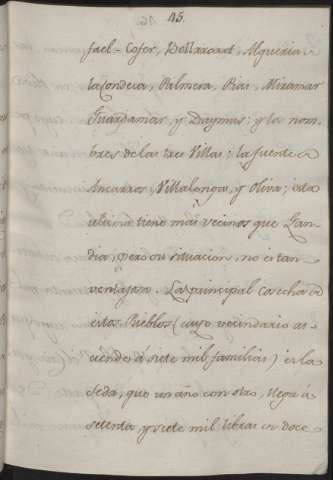 15.
fael-Cofer, Bellarcart, Alqueria
la Condeca, Palmera, Pias, Miramar
Guardamar, y Daymus; y la nom-
bres de las tres Villas: la fuente
Ancarros, Villalonga, y Oliva; esta
ultima tiene más vecinos que Gan-
dia, pero su situacion, no es tan
ventajosa. La principal cosecha de
estos Pueblos (cuyo vecindario as-
ciende á siete mil familias) es la
seda, que un año con otro, llega á
setenta y siete mil libras de doce